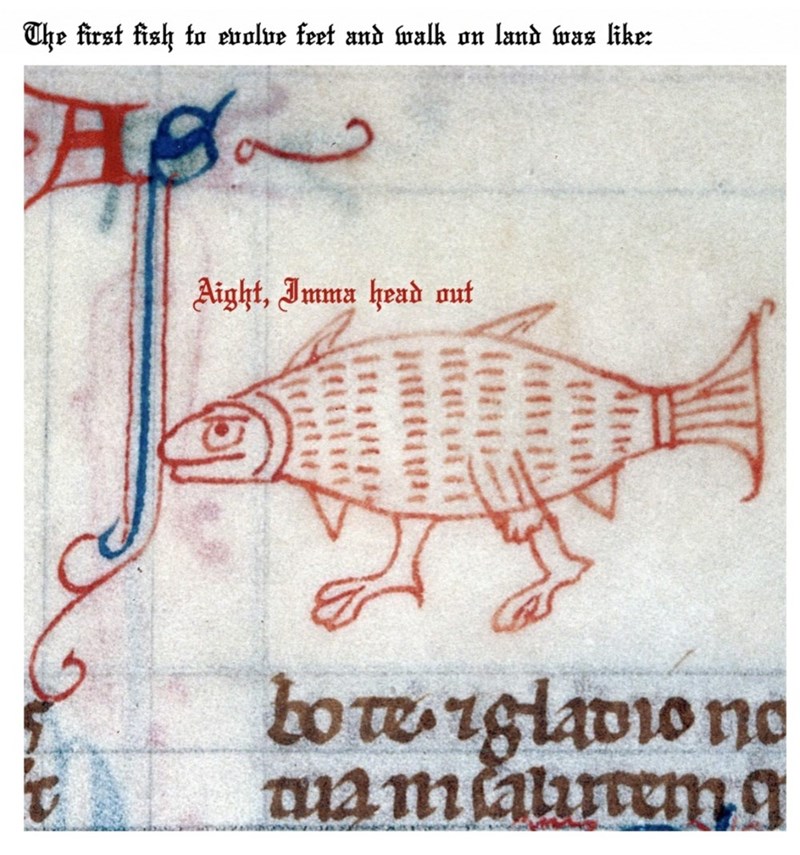 The first fish to evolve feet and walk on land was like:
AS
Aight, Imma head out
bo te. ⁊ gladio no
tua m salutem q